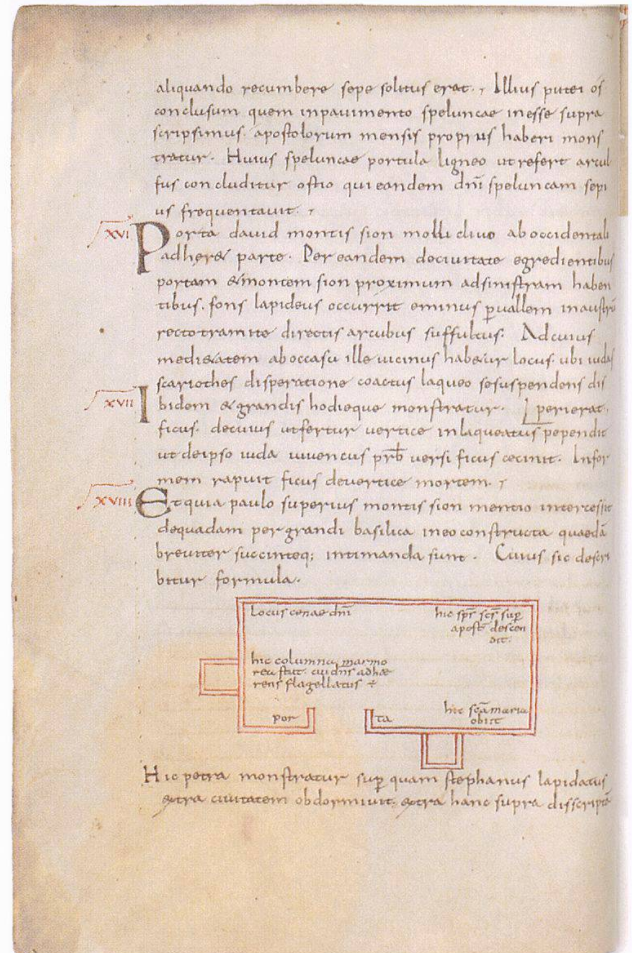 aliquando recumbere sepe solitus erat. Illius putei os
conclusum quem inpauimento speluncae inesse supra
scripsimus. apostolorum mensis proprius haberi mons
tratur. Huius speluncae portula ligneo ut refert arcul
fus concluditur ostio qui eandem dn̄i speluncam sepi
us frequentauit.
XVI Porta dauid montis sion molli cliuo ab occidentali
adheret parte. Per eandem deciuitate egredientibus
portam & montem sion proximum adsinistram haben
tibus. fons lapideus occurrit eminus ꝑ uallem in austrū
recto tramite directis arcubus suffultus. Ad cuius
medietatem ab occasu ille uicinus habetur locus. ubi iudas
scariothes disperatione coactus laqueo se suspendens dis
XVII Ibidem & grandis hodieque monstratur. perierat.
ficus. de cuius ut fertur uertice inlaqueatus pependit
ut de ipso iuda iuuencus prb̄ uersificus cecinit. Infor
mem rapuit ficus de uertice mortem.
XVIII Et quia paulo superius montis sion mentio intercessit
de quadam pergrandi basilica in eo constructa quaedā
breuiter succinteq; intimanda sunt. Cuius sic descri
bitur formula.
Locus cenae dn̄i
hic sp̄s sc̄s sup̄
apost̄ descen
dit.
hic columna marmo
rea stat. cui dn̄s adhae
rens flagellatus ÷
por ta
hic sc̄a maria
obiit
Hic petra monstratur sup̄ quam stephanus lapidatus
extra ciuitatem obdormiuit. extra hanc supra disscriptā